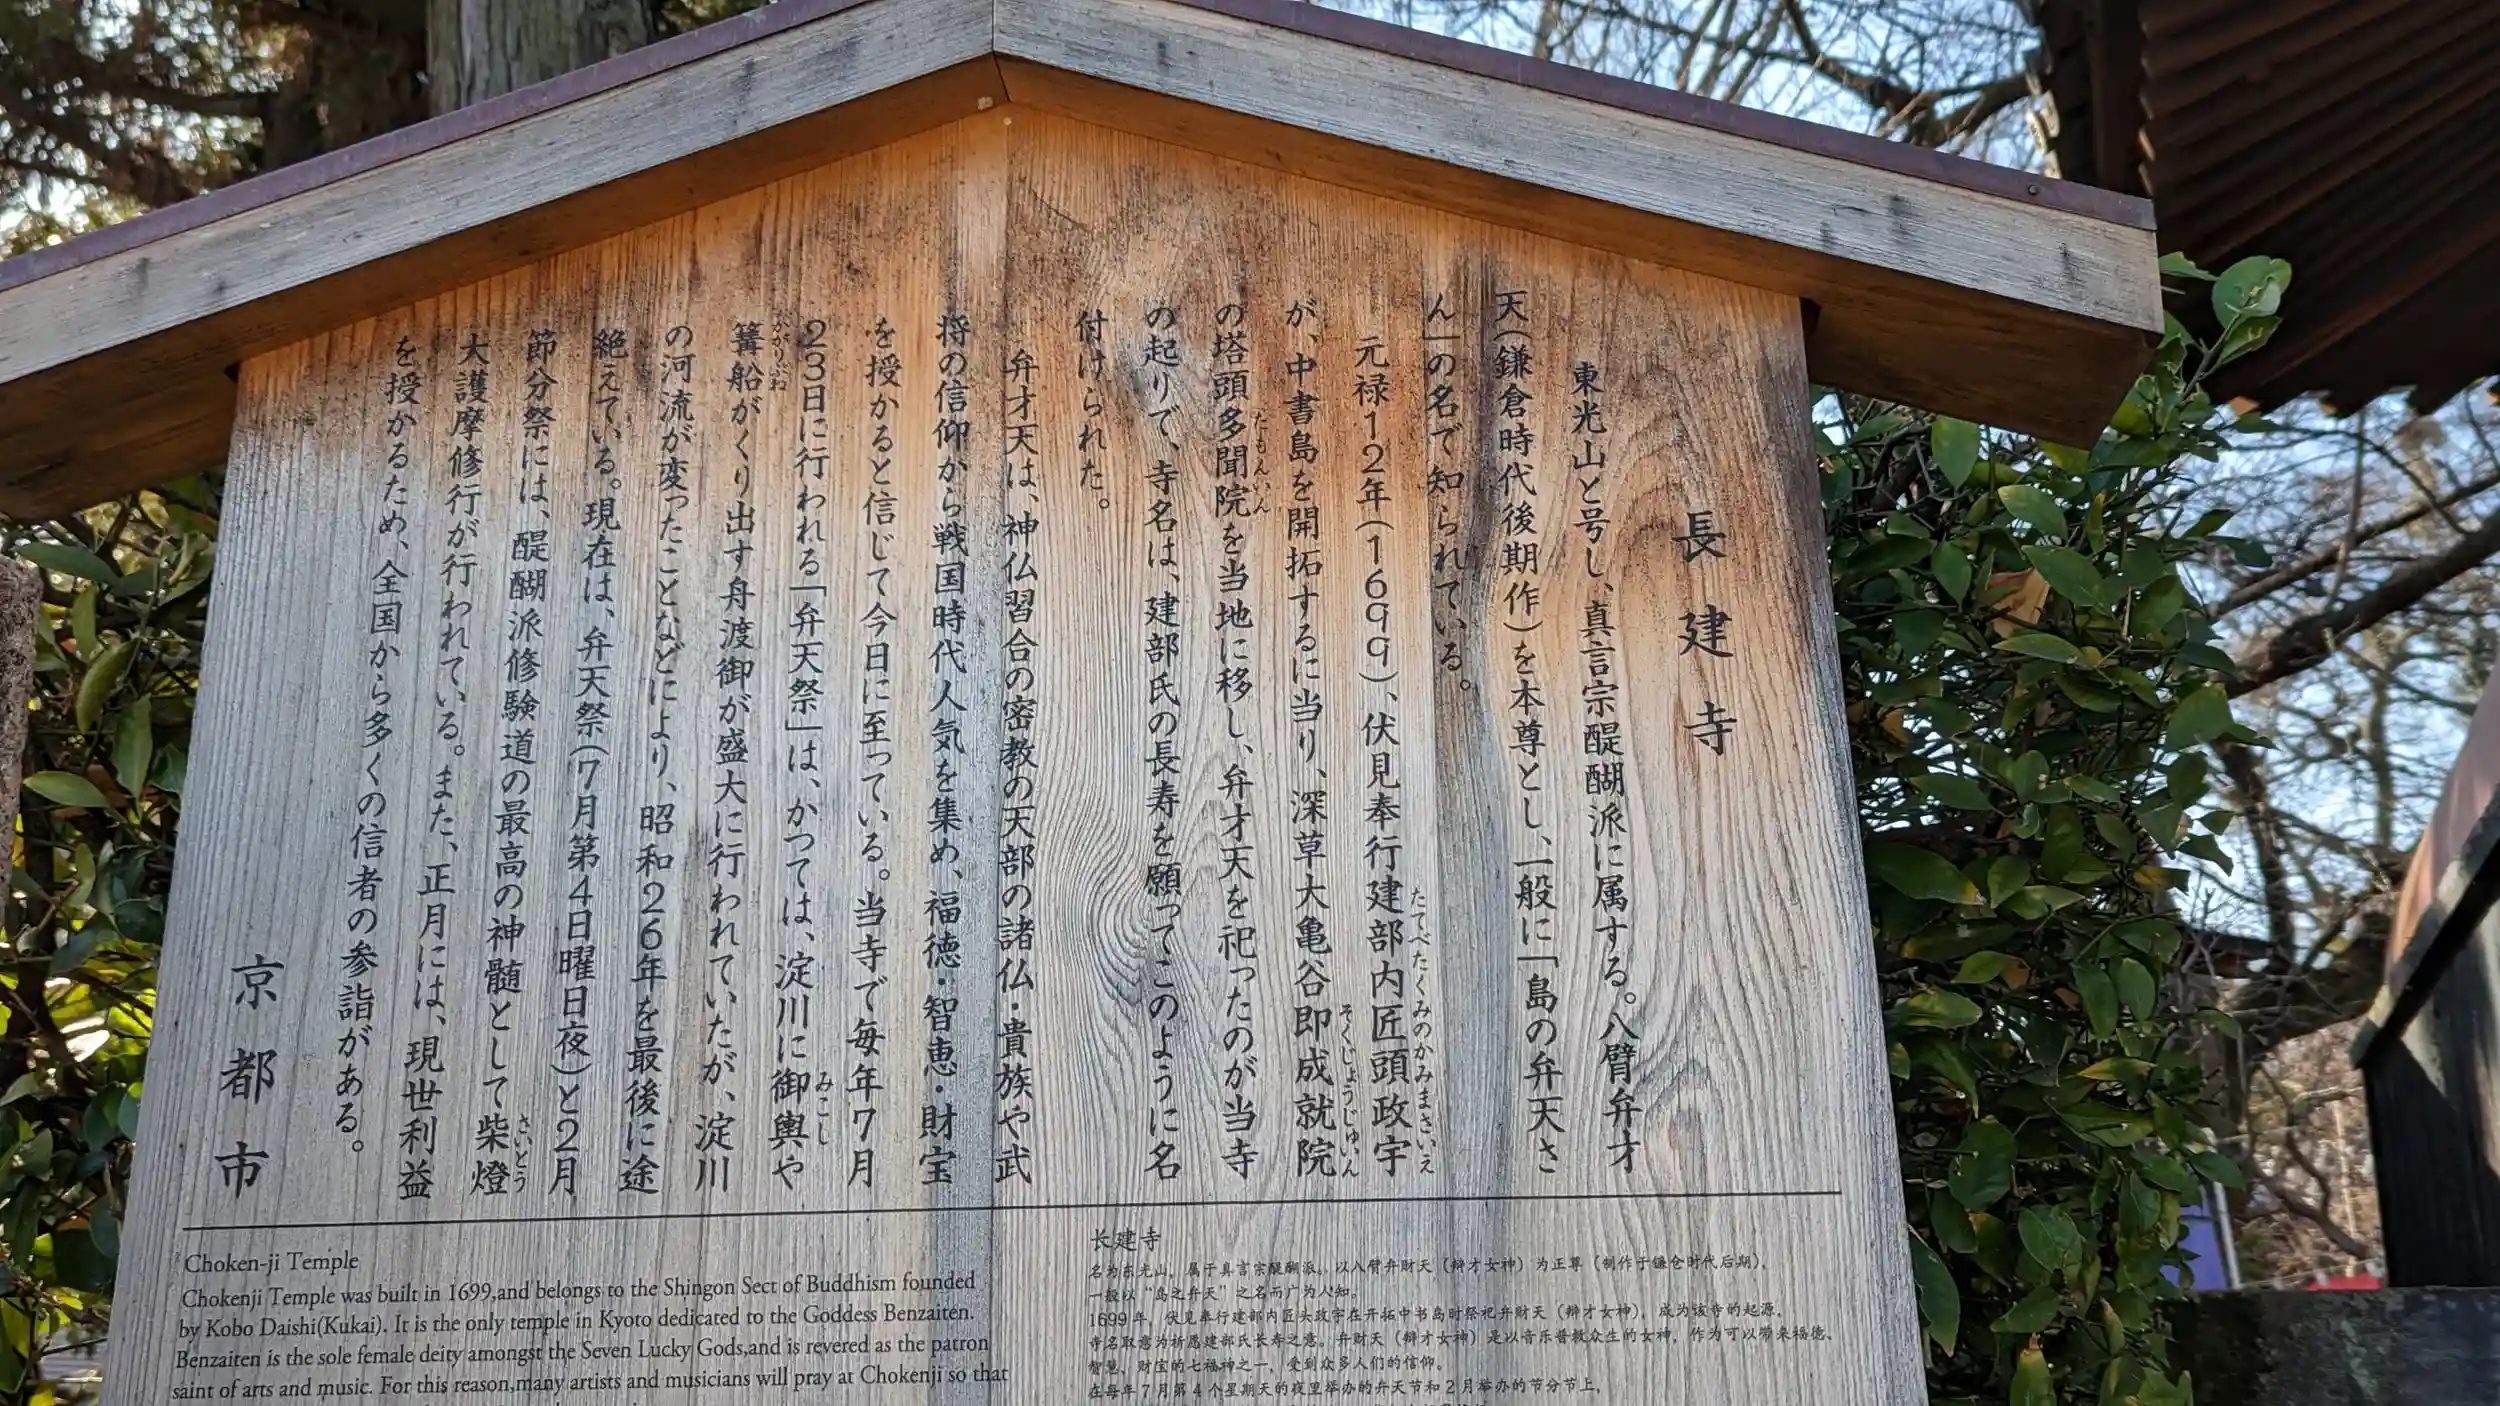 長建寺
東光山と号し、真言宗醍醐派に属する。八臂弁才
天(鎌倉時代後期作)を本尊とし、一般に「島の弁天さ
ん」の名で知られている。
元禄12年(1699)、伏見奉行建部内匠頭政宇
たてべたくみのかみまさいえ
が、中書島を開拓するに当り、深草大亀谷即成就院
そくじょうじゅいん
の塔頭多聞院を当地に移し、弁才天を祀ったのが当寺
たもんいん
の起りで、寺名は、建部氏の長寿を願ってこのように名
付けられた。
弁才天は、神仏習合の密教の天部の諸仏・貴族や武
将の信仰から戦国時代人気を集め、福徳・智恵・財宝
を授かると信じて今日に至っている。当寺で毎年7月
23日に行われる「弁天祭」は、かつては、淀川に御輿や
みこし
篝船がくり出す舟渡御が盛大に行われていたが、淀川
かがりぶね
の河流が変ったことなどにより、昭和26年を最後に途
絶えている。現在は、弁天祭(7月第4日曜日夜)と2月
節分祭には、醍醐派修験道の最高の神髄として柴燈
さいとう
大護摩修行が行われている。また、正月には、現世利益
を授かるため、全国から多くの信者の参詣がある。
京都市
Choken-ji Temple
Chokenji Temple was built in 1699,and belongs to the Shingon Sect of Buddhism founded
by Kobo Daishi(Kukai). It is the only temple in Kyoto dedicated to the Goddess Benzaiten.
Benzaiten is the sole female deity amongst the Seven Lucky Gods,and is revered as the patron
saint of arts and music. For this reason,many artists and musicians will pray at Chokenji so that
长建寺
名为东光山，属于真言宗醍醐派。以八臂弁财天（辩才女神）为正尊（制作于镰仓时代后期），
一般以“岛之弁天”之名而广为人知。
1699年，伏见奉行建部内匠头政宇在开拓中书岛时祭祀弁财天（辩才女神），成为该寺的起源，
寺名取意为祈愿建部氏长寿之意。弁财天（辩才女神）是以音乐普救众生的女神，作为可以带来福德、
智慧、财宝的七福神之一，受到众多人们的信仰。
在每年7月第4个星期天的夜里举办的弁天节和2月举办的节分节上，